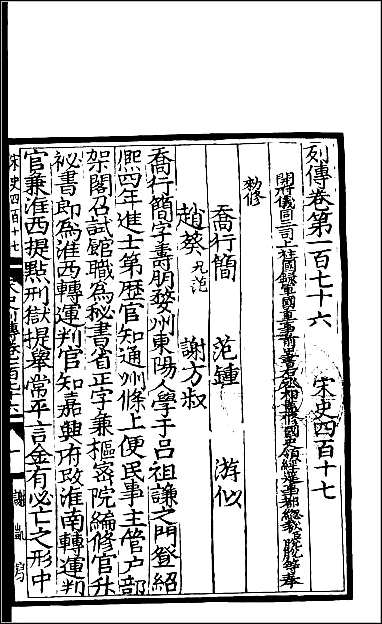 列傳卷第一百七十六 宋史四百十七
開府儀同三司上柱國錄軍國重事前中書右丞相監修國史領經筵事都總裁脫脫等奉
勑修
喬行簡 范鍾 游似
趙葵兄范 謝方叔
喬行簡字壽朋婺州東陽人學于呂祖謙之門登紹
熙四年進士第歷官知通州條上便民事主管户部
架閣召試館職為秘書省正字兼樞密院編修官升
祕書郎為淮西轉運判官知嘉興府改淮南轉運判
官兼淮西提點刑獄提舉常平言金有必亡之形中
宋史四百十七
宋史列傳卷一百七十六
一